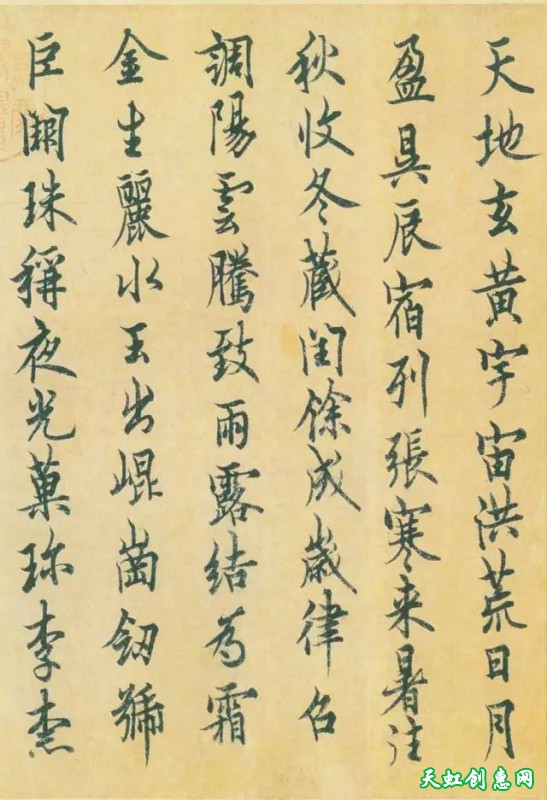 天地玄黃宇宙洪荒日月
盈昃辰宿列張寒来暑往
秋收冬藏閏餘成歲律呂
調陽雲騰致雨露結為霜
金生麗水玉出崐崗劒號
巨闕珠稱夜光菓珎李柰
天虹创惠网